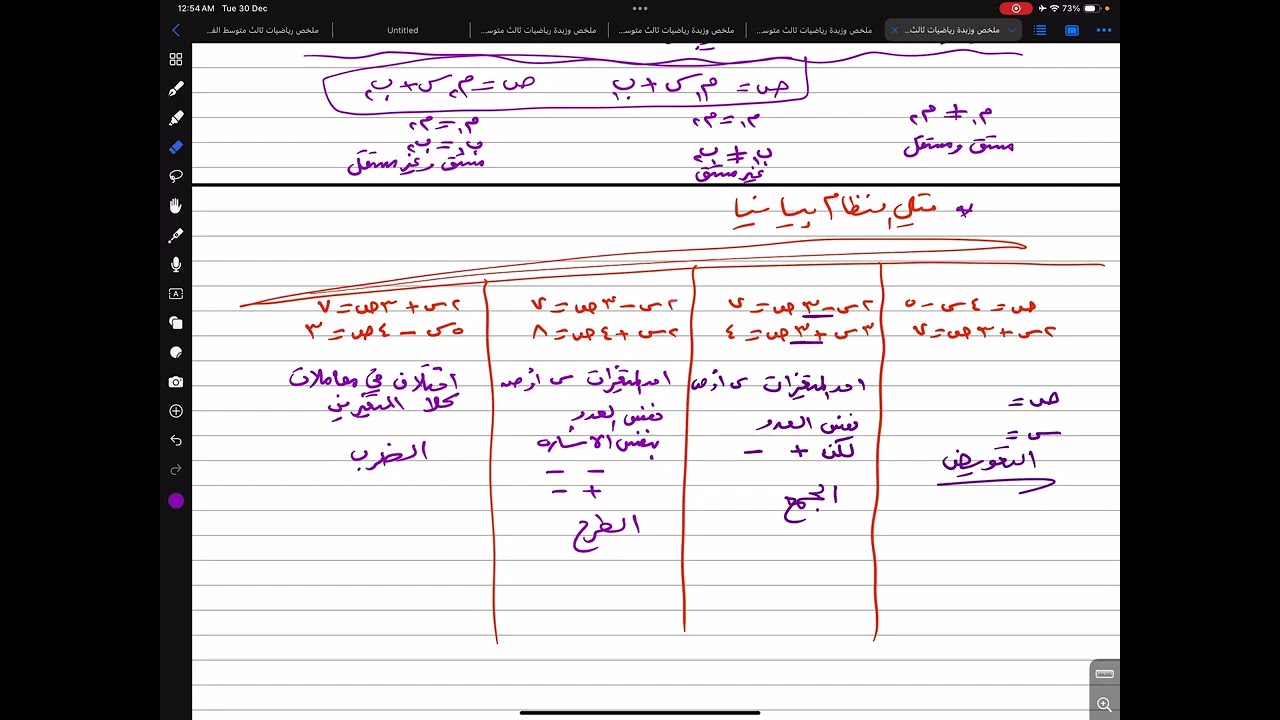 12:54 AM Tue 30 Dec
73%
ملخص رياضيات ثالث متوسط الف...
Untitled
ملخص وزبدة رياضيات ثالث متوس...
ملخص وزبدة رياضيات ثالث متوس...
ملخص وزبدة رياضيات ثالث متوس...
ملخص وزبدة رياضيات ثالث...
ص = م١ س + ب١
ص = م٢ س + ب٢
م١ ≠ م٢
متسق ومستقل
م١ = م٢
ب١ ≠ ب٢
غير متسق
م١ = م٢
ب١ = ب٢
متسق وغير مستقل
* مثلي النظام بيانيا
ص = ٤س − ٥
٢س + ٣ص = ٧
ص =
س =
التعويض
٢س − ٣ص = ٧
٣س + ٣ص = ٤
احد المتغيرات س أو ص
نفس العدد
لكن + −
الجمع
٢س − ٣ص = ٧
٢س + ٤ص = ٨
احد المتغيرات س أو ص
نفس العدد
بنفس الاشاره
− −
+ −
الطرح
٢س + ٣ص = ٧
٥س − ٤ص = ٣
اختلاف في معاملات
كلا المتغيرين
الضرب